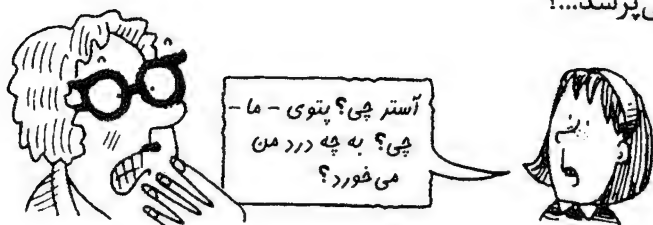 می‌پرسد...؟
آستر چی؟ پتوی - ما -
چی؟ به چه درد من
می‌خورد؟